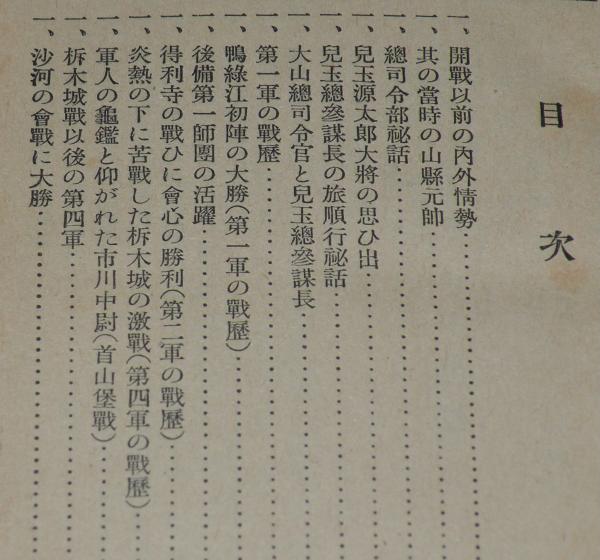 目次
一、開戰以前の內外情勢
一、其の當時の山縣元帥
一、總司令部祕話
一、兒玉源太郎大將の思ひ出
一、兒玉總參謀長の旅順行祕話
一、大山總司令官と兒玉總參謀長
一、第一軍の戰歷
一、鴨綠江初陣の大勝(第一軍の戰歷)
一、後備第一師團の活躍
一、得利寺の戰ひに會心の勝利(第二軍の戰歷)
一、炎熱の下に苦戰した析木城の激戰(第四軍の戰歷)
一、軍人の龜鑑と仰がれた市川中尉(首山堡戰)
一、析木城戰以後の第四軍
一、沙河の會戰に大勝